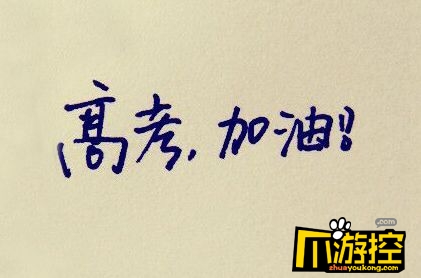 高考，加油!!
.com
爪游控
zhuayoukong.com